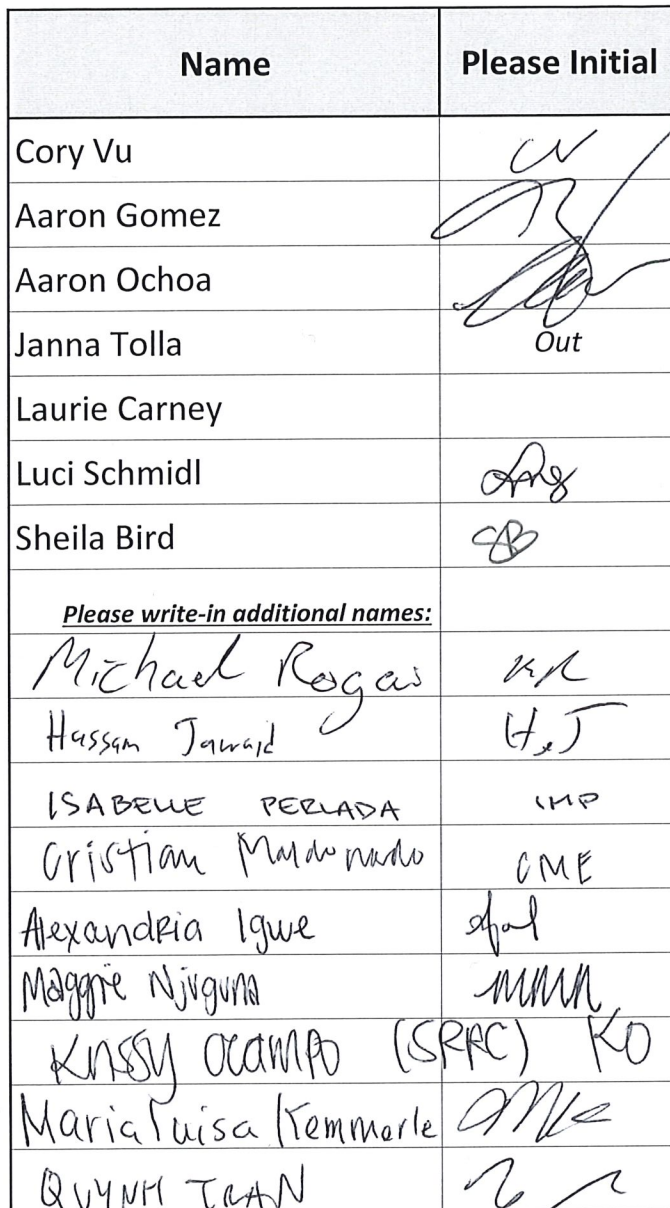 Name Please Initial
Cory Vu CV
Aaron Gomez
Aaron Ochoa
Janna Tolla Out
Laurie Carney
Luci Schmidl
Sheila Bird SB
Please write-in additional names:
Michael Rogas
Hassam Jawaid H.J
ISABELLE PERLADA IMP
Cristian Maldonado CME
Alexandria Igwe
Maggie Njuguna MMN
KRISSY OCAMPO (SRRC) KO
Maria Luisa Kemmerle MLK
QUYNH TRAN